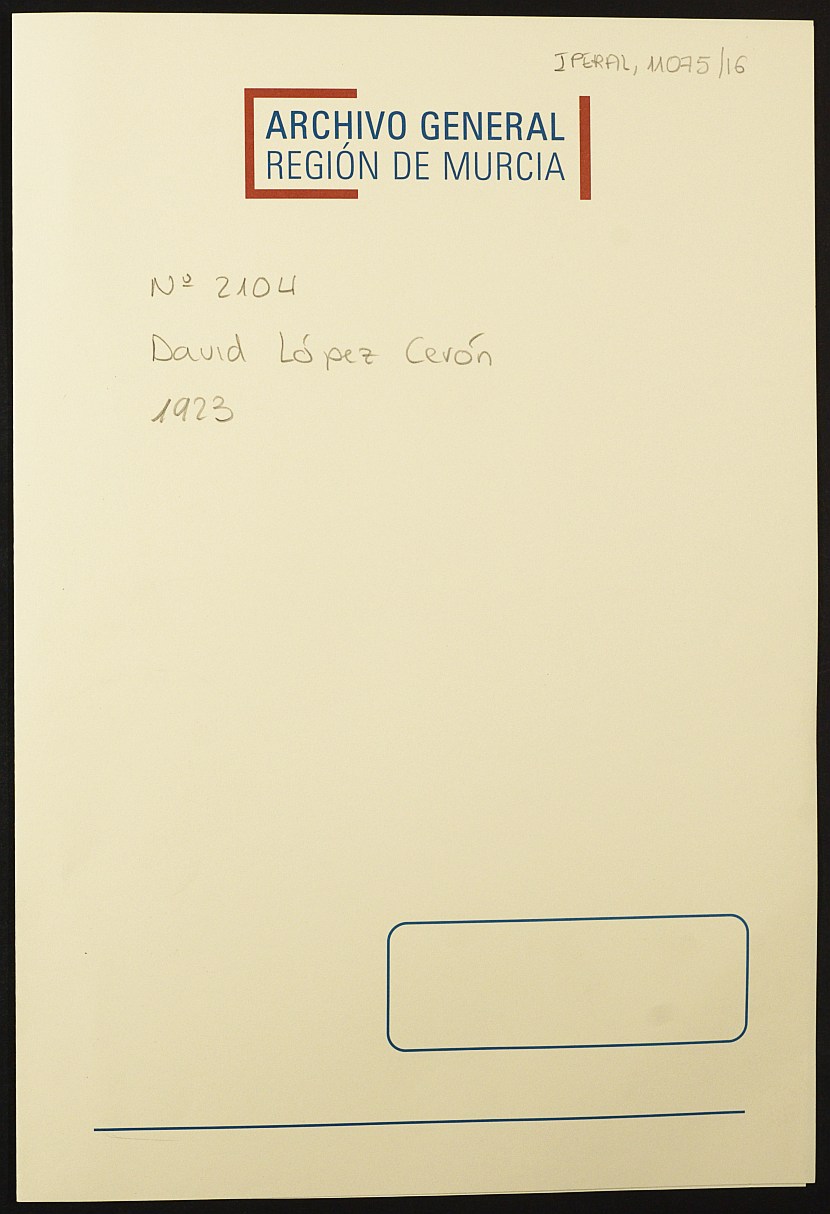 IPERAL, 11075/16
ARCHIVO GENERAL
REGIÓN DE MURCIA
Nº 2104
David López Cerón
1923